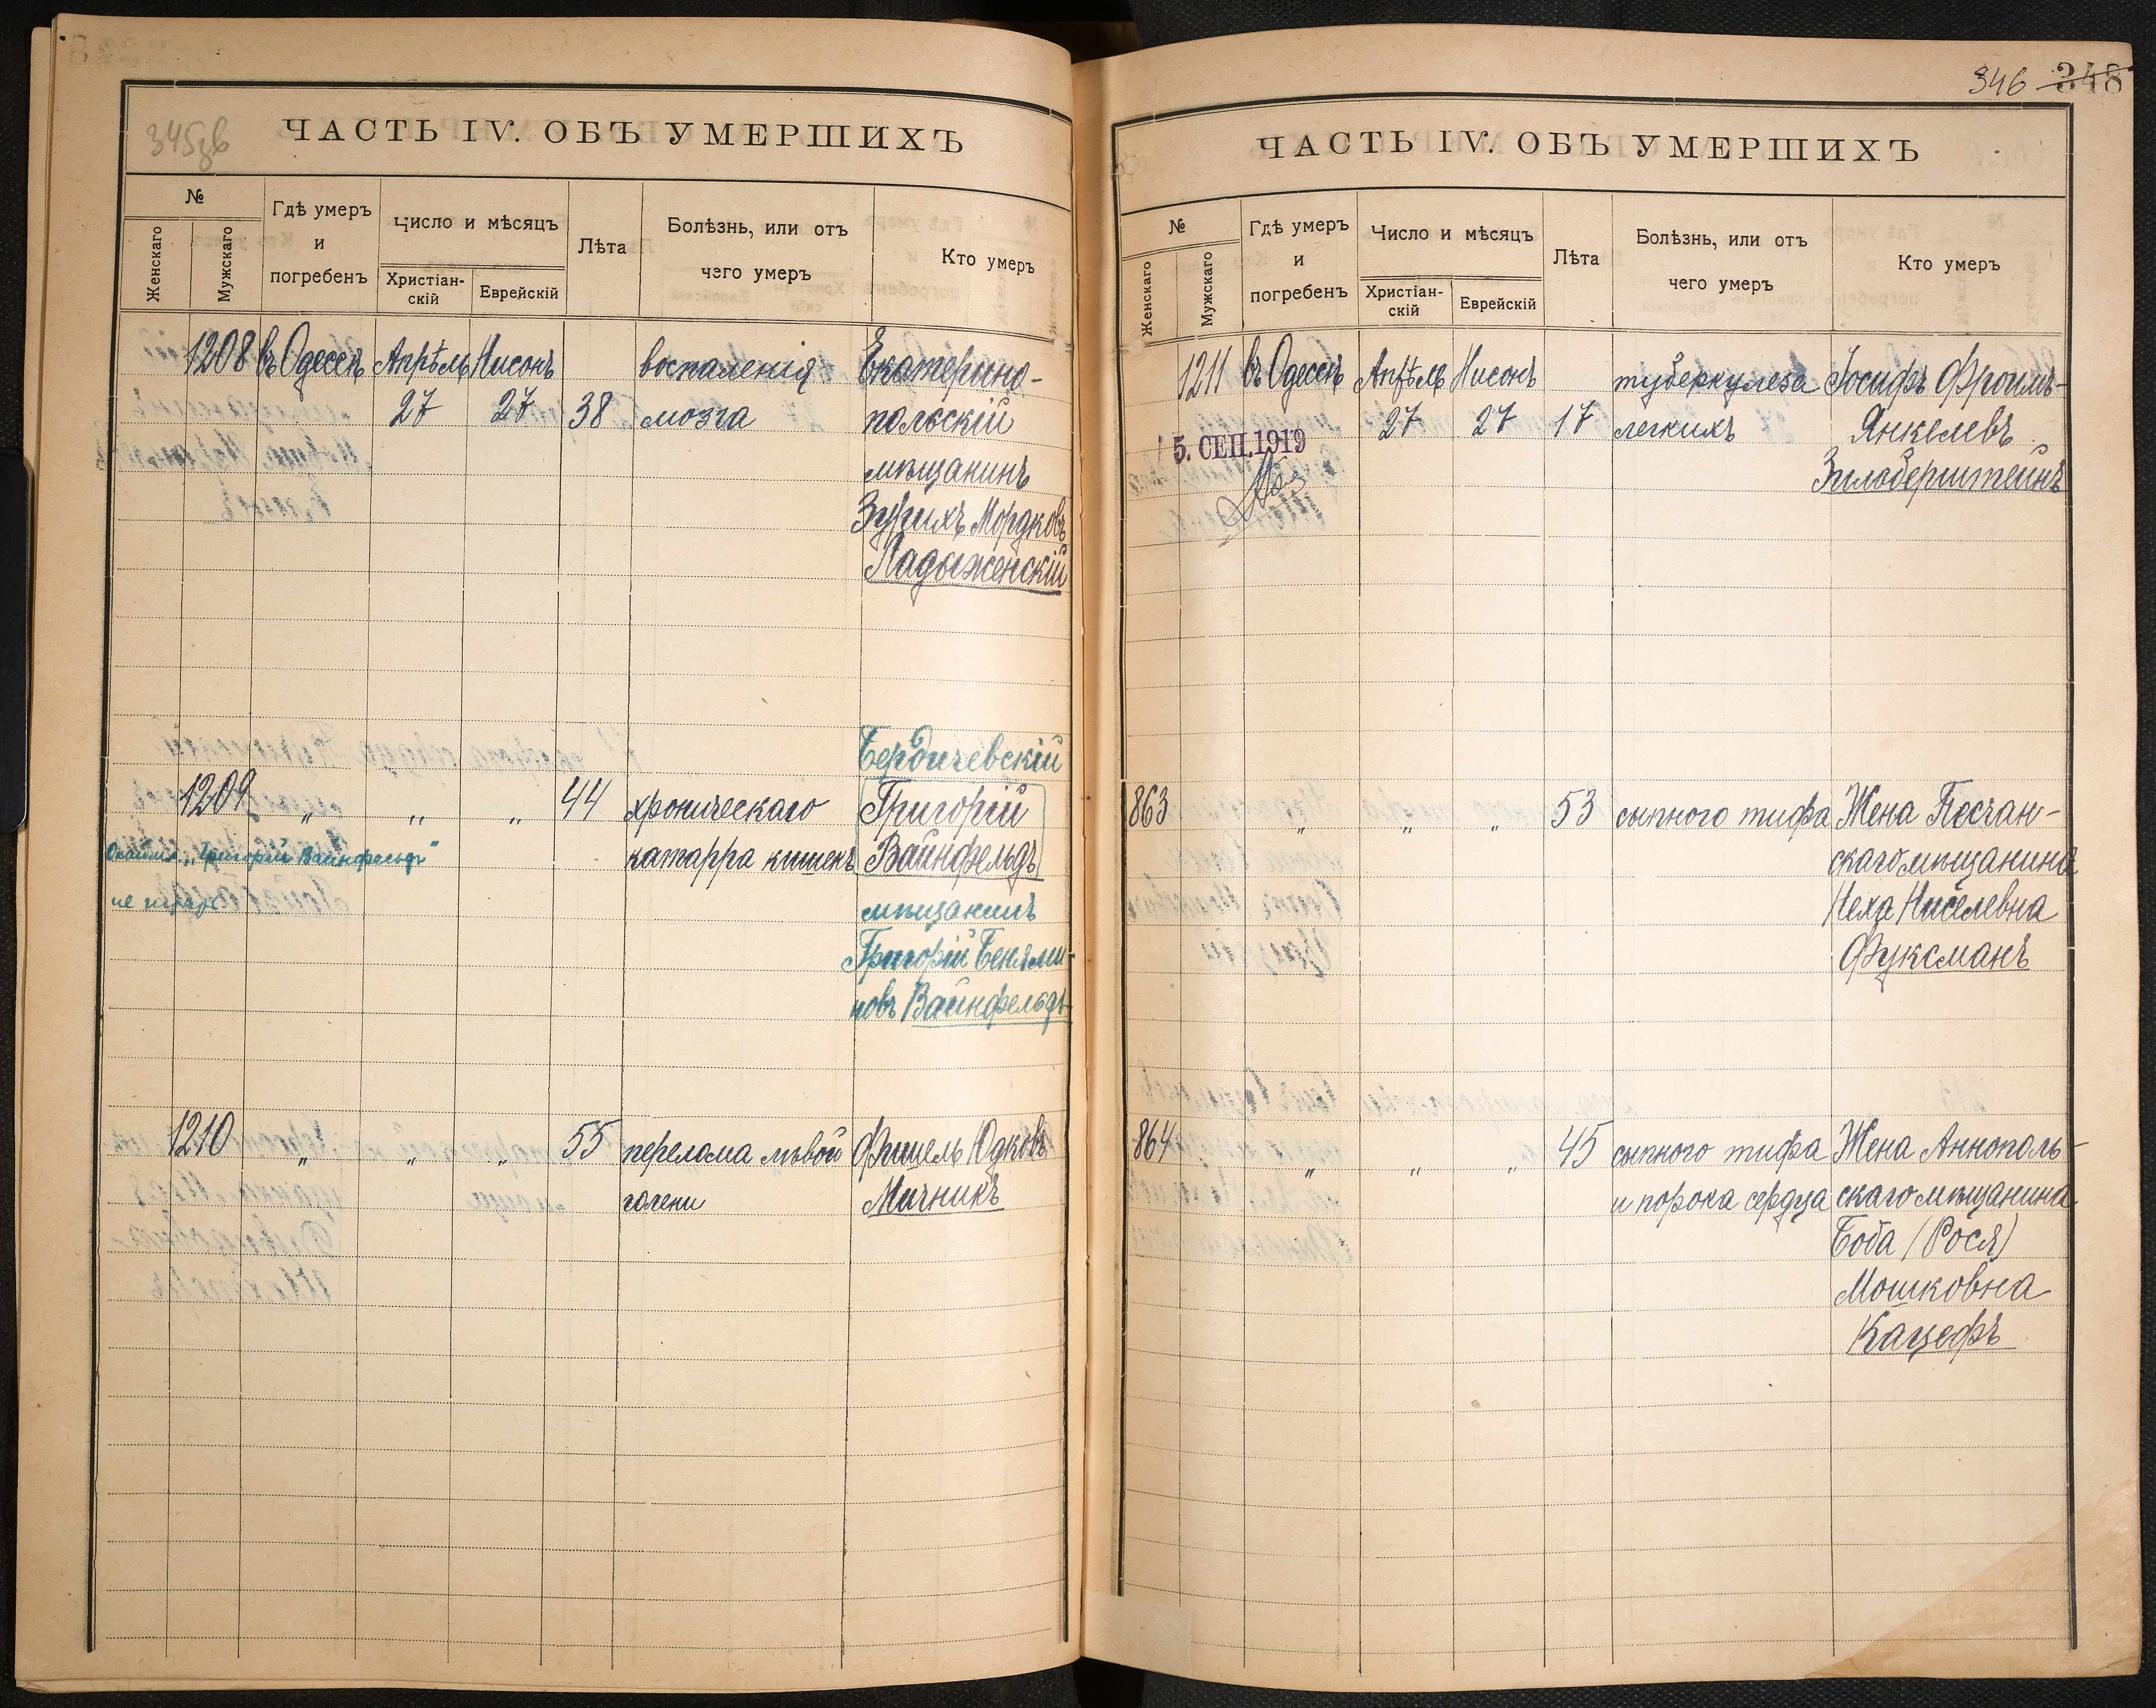 345зв
ЧАСТЬ IV. ОБЪ УМЕРШИХЪ
№
Женскаго
Мужскаго
Гдѣ умеръ
и
погребенъ
Число и мѣсяцъ
Христіан-
скій
Еврейскій
Лѣта
Болѣзнь, или отъ
чего умеръ
Кто умеръ
1208 въ Одессѣ Апрѣль Нисонъ воспаленія Екатерино-
27 27 38 мозга польскій
мѣщанинъ
Мордковъ
Ладыженскій
Бердичевскій
1209 „ „ „ 44 хроническаго Григорій
„Григорій Вайнфельдъ" катарра кишекъ Вайнфельдъ
не мѣщанинъ
Григорій Бенями-
новъ Вайнфельдъ
1210 „ „ „ 55 перелома лѣвой Фишель Юдковъ
голени Мичникъ
346 348
ЧАСТЬ IV. ОБЪ УМЕРШИХЪ
№
Женскаго
Мужскаго
Гдѣ умеръ
и
погребенъ
Число и мѣсяцъ
Христіан-
скій
Еврейскій
Лѣта
Болѣзнь, или отъ
чего умеръ
Кто умеръ
1211 въ Одессѣ Апрѣль Нисонъ туберкулеза Іосифъ Фроимъ-
27 27 17 легкихъ Янкелевъ
5. СЕП. 1919
Зильберштейнъ
863 „ „ „ 53 сыпного тифа Жена Песчан-
скаго мѣщанина
Неха Нисёлевна
Фуксманъ
864 „ „ „ 45 сыпного тифа Жена Аннополь-
и порока сердца скаго мѣщанина
Боба (Рося)
Мошковна
Кацефъ